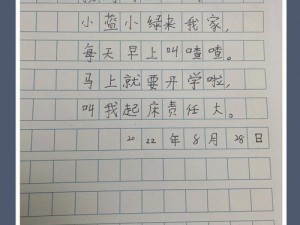 小蓝小绿来我家，
每天早上叫喳喳。
马上就要开学啦，
叫我起床责任大。
2022年8月28日